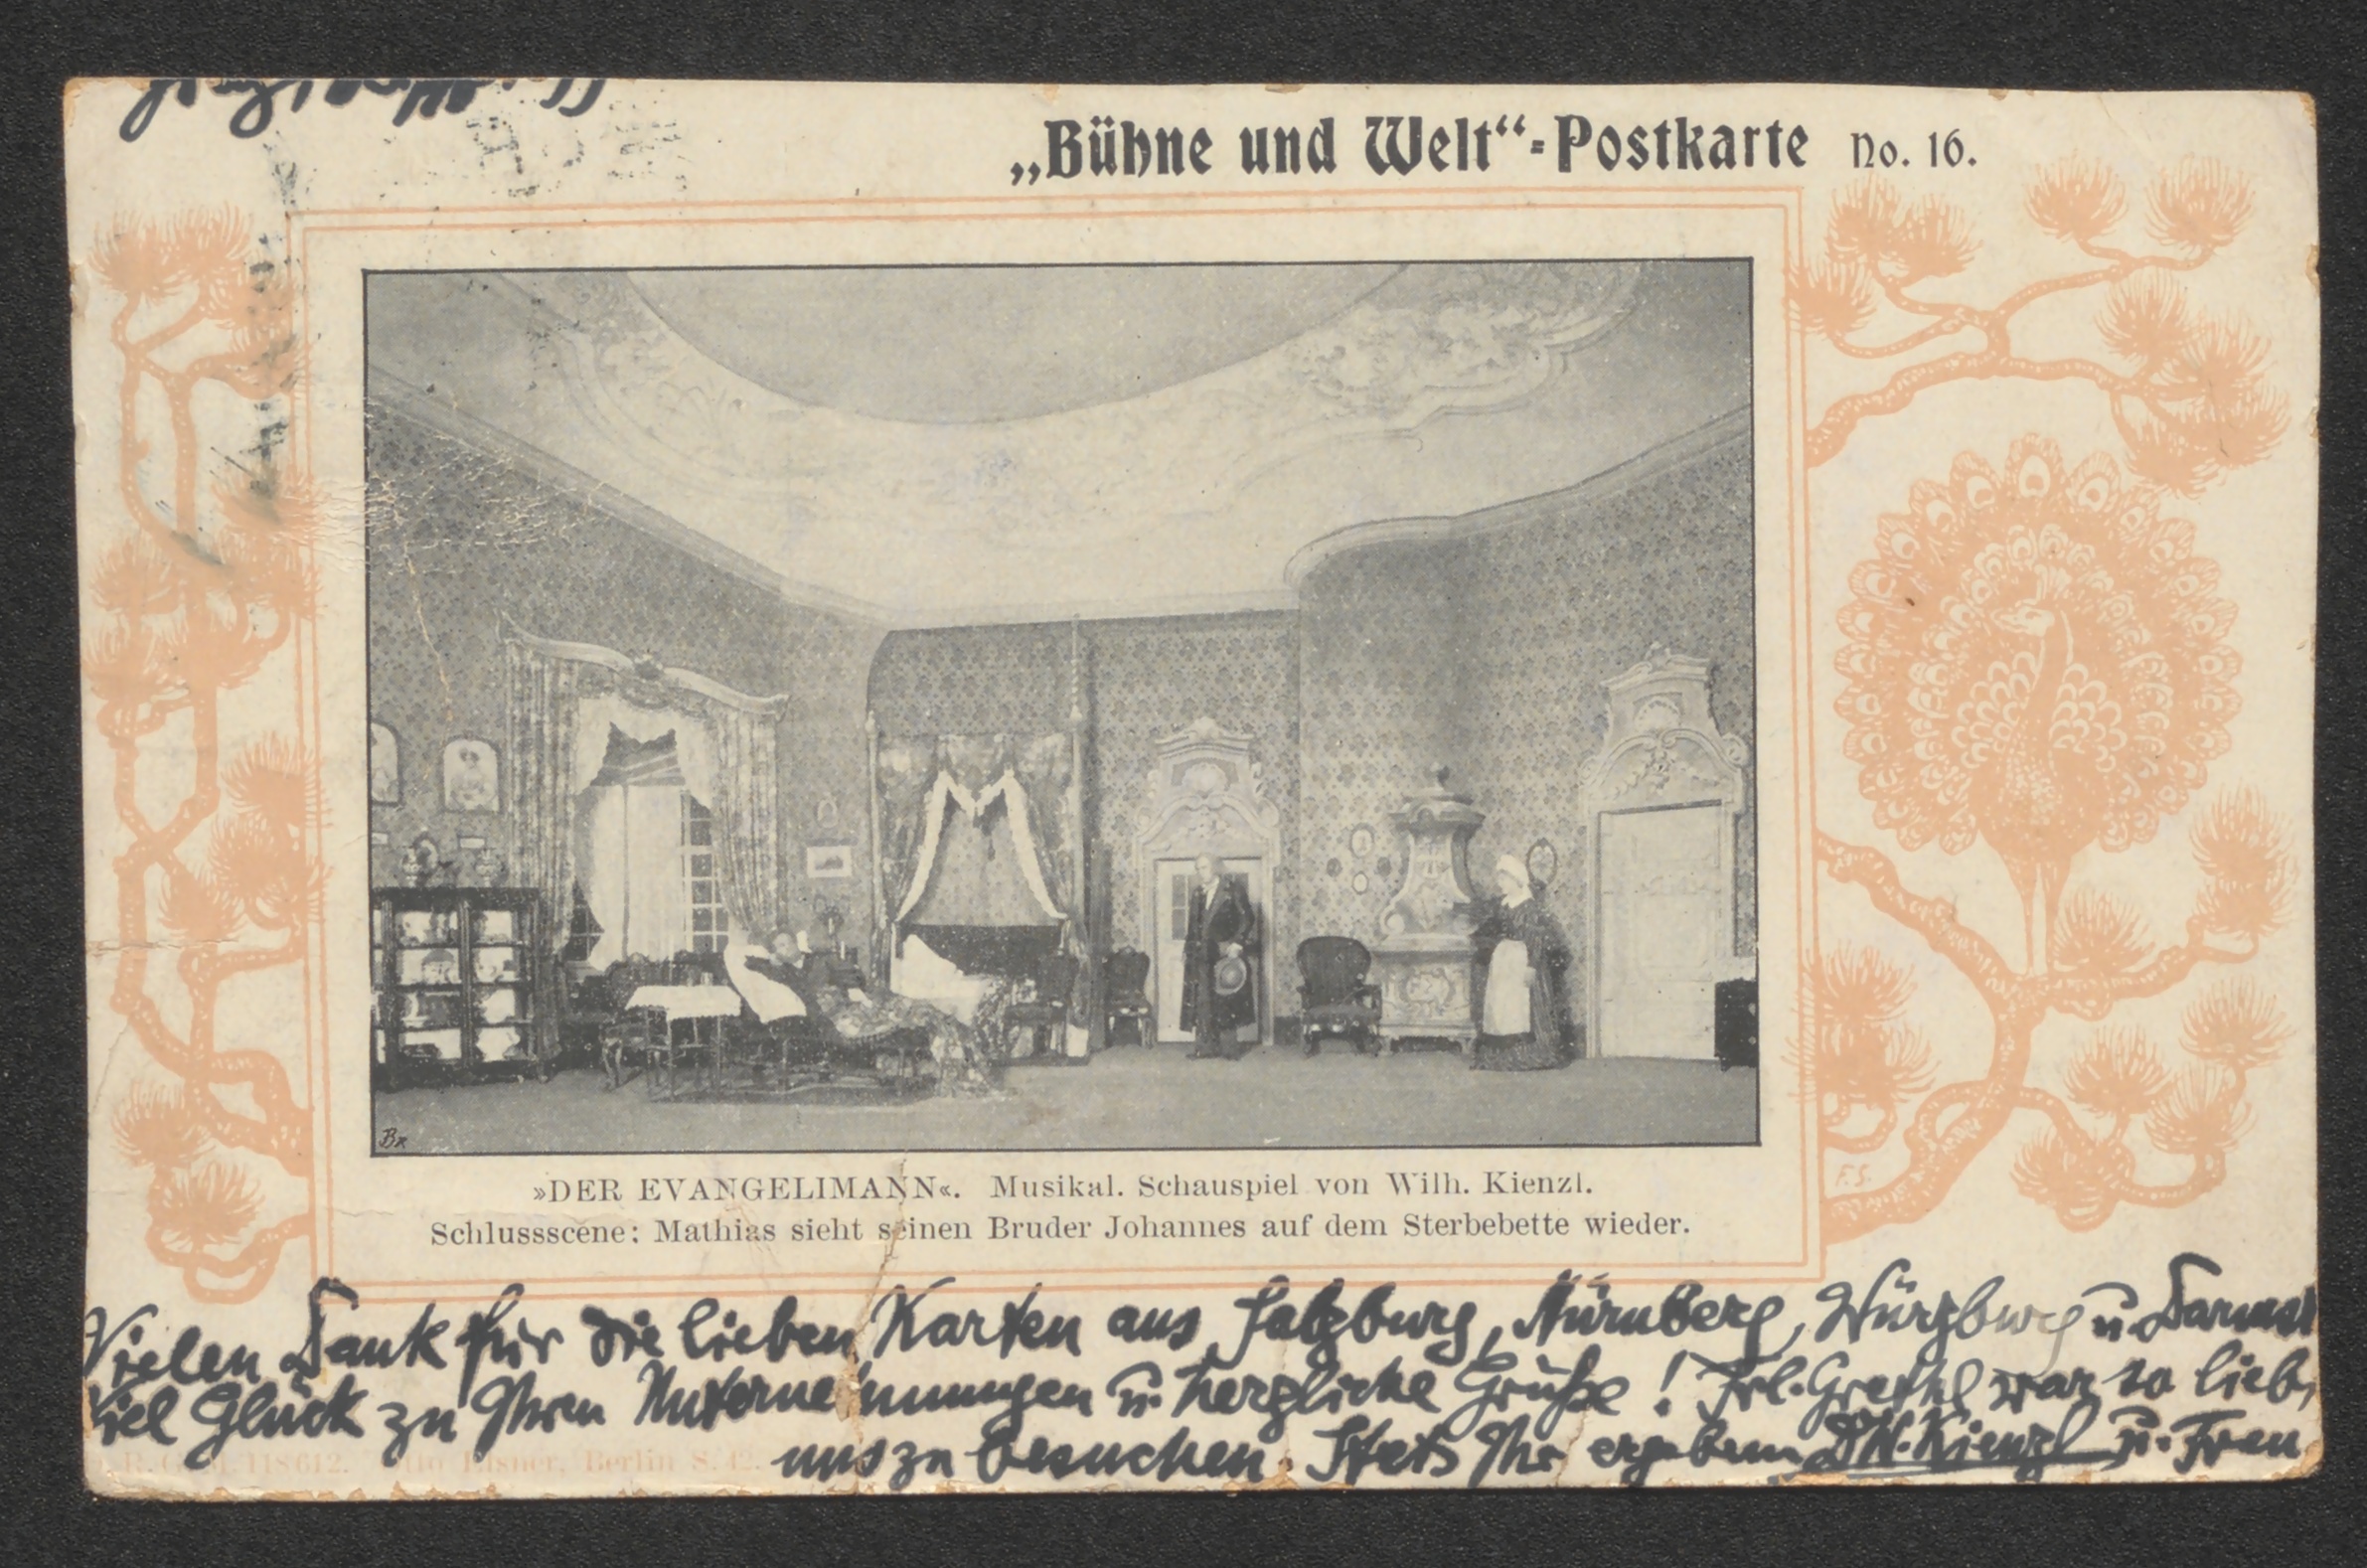 „Bühne und Welt“-Postkarte No. 16.
Bx
»DER EVANGELIMANN«. Musikal. Schauspiel von Wilh. Kienzl.
Schlussscene: Mathias sieht seinen Bruder Johannes auf dem Sterbebette wieder.
F.S.
Vielen Dank für die lieben Karten aus Salzburg, Nürnberg, Würzburg u. Darmst
Viel Glück zu Ihren Unternehmungen u. herzliche Grüße! Frl. Grethel war so lieb,
uns zu besuchen. Stets Ihr ergebener Dr W. Kienzl u. Frau
R. G. M. 118612. Otto Elsner, Berlin S. 42.